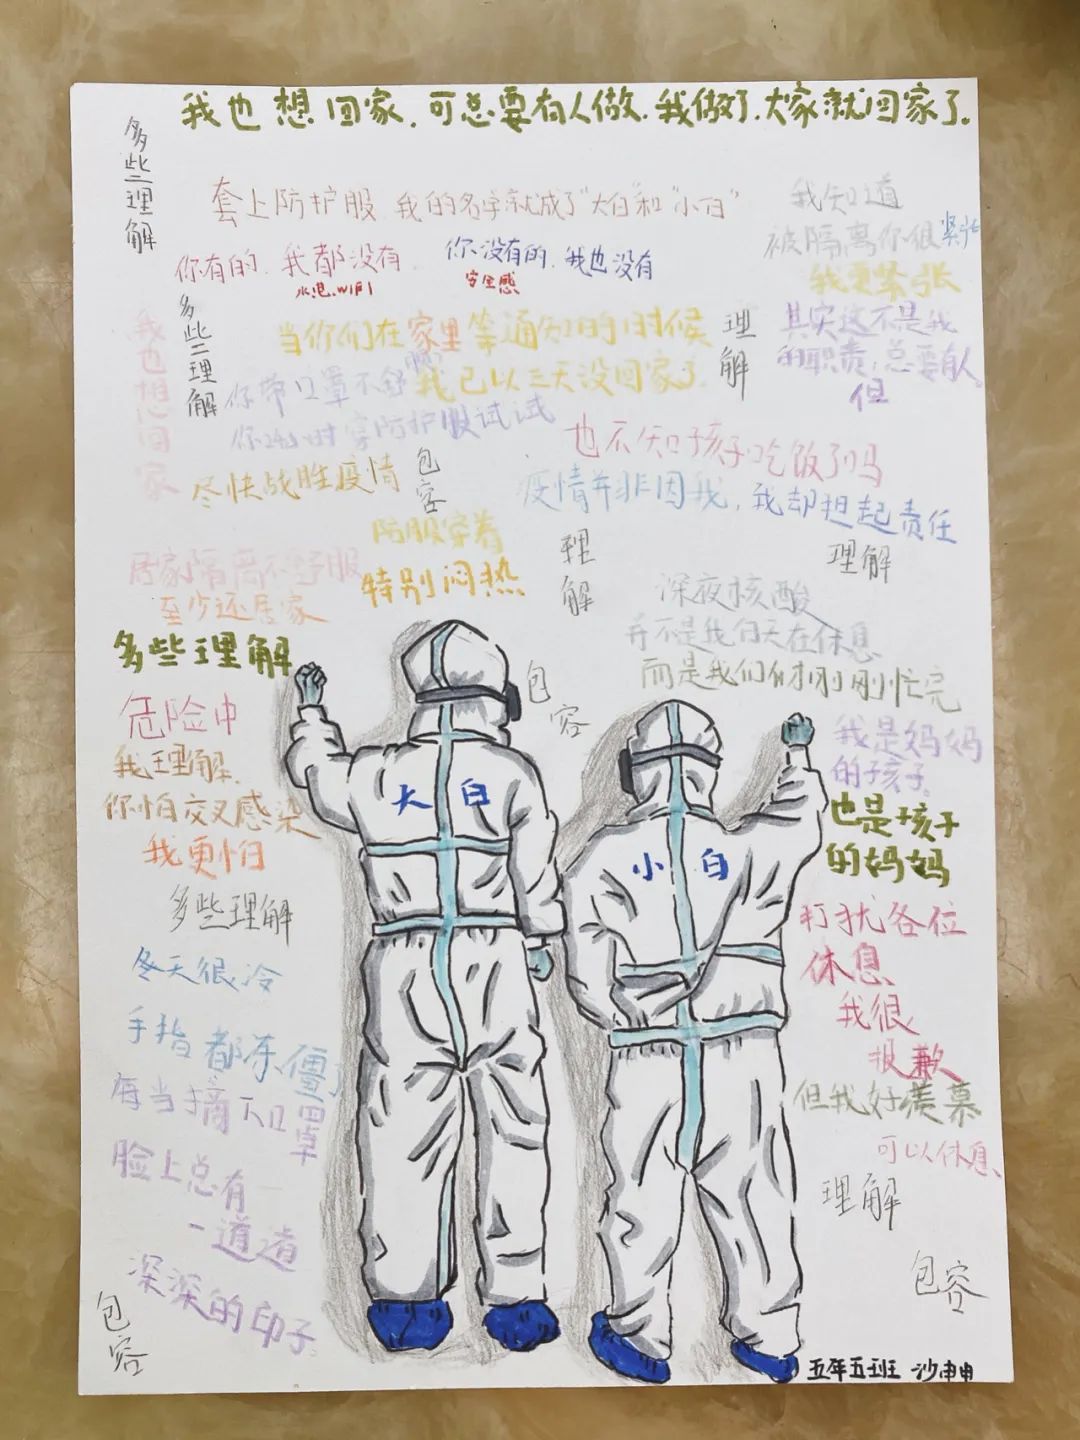 我也想回家.可总要有人做.我做了.大家就回家了.
多些理解
套上防护服.我的名字就成了"大白"和"小白"
你有的.我都没有
水电.WIFI
你没有的.我也没有
安全感
我知道
被隔离你很紧张
我更紧张
其实这不是我
的职责,总要有人
但
多些理解
我也想回家
当你们在家里等通知的时候
我已以三天没回家了.
理解
你带口罩不舒服
你24小时穿防护服试试
也不知孩子吃饭了吗
尽快战胜疫情
包容
疫情并非因我,我却担起责任
防服穿着
特别闷热
理解
理解
居家隔离不舒服
至少还居家
深夜核酸
并不是我们天在休息
而是我们才刚刚忙完
多些理解
包容
危险中
我理解.
你怕交叉感染
我更怕
多些理解
冬天很冷
手指都冻僵了
每当摘下口罩
脸上总有
一道道
深深的印子.
包容
大白
小白
我是妈妈
的孩子.
也是孩子
的妈妈
打扰各位
休息
我很
抱歉
但我好羡慕
可以休息.
理解
包容
五年五班 沙申申